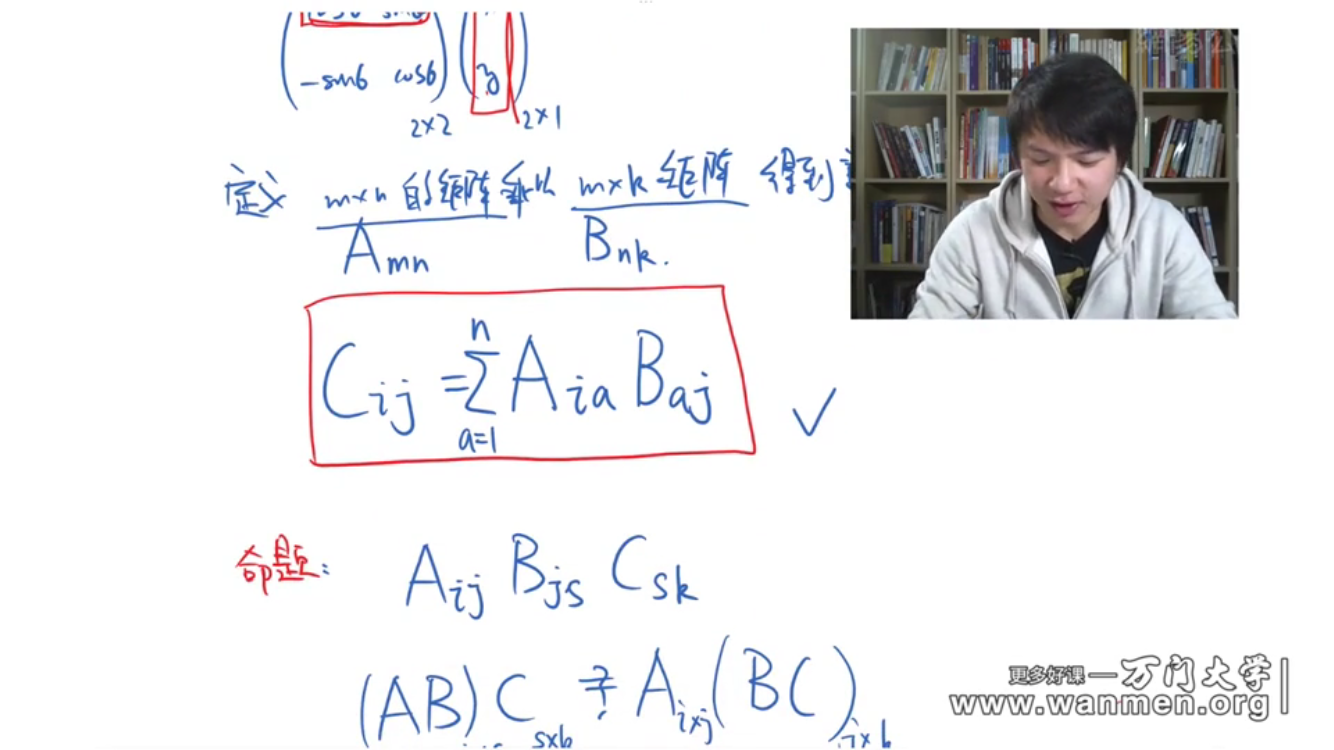 -sinθ cosθ
2×2 2×1
定义 m×n 的矩阵乘以 m×k 矩阵 得到
A_mn B_nk.
C_ij = ∑_{a=1}^{n} A_ia B_aj ✓
命题: A_ij B_js C_sk
(AB) C_{s×k} ≟ A_{i×j} (BC)_{j×k}
更多好课—万门大学
www.wanmen.org